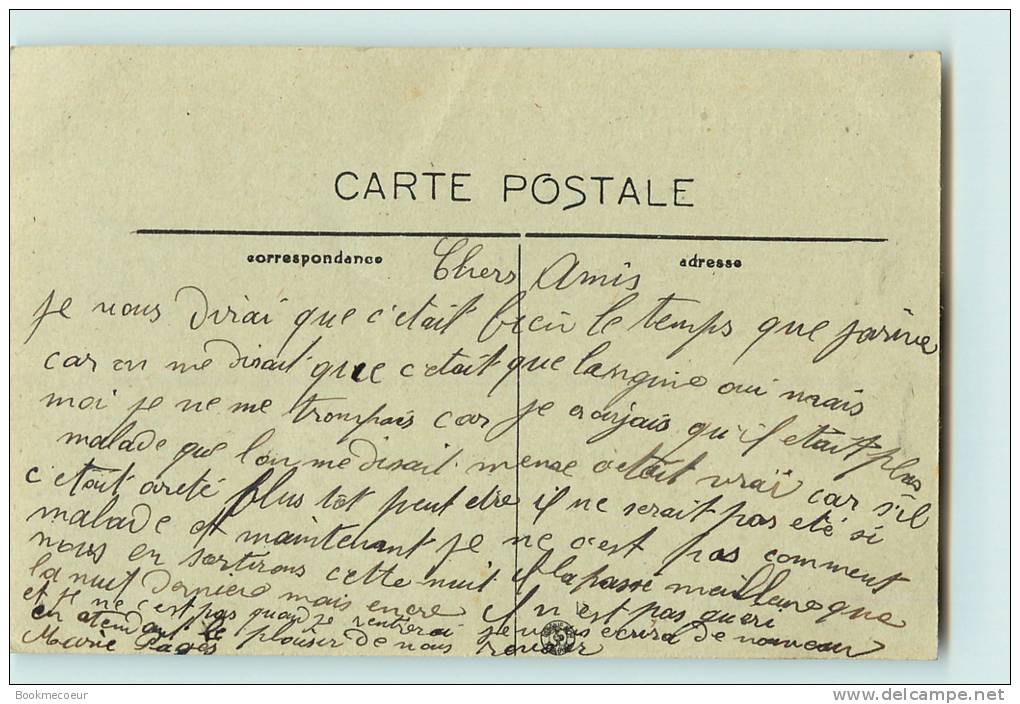 CARTE POSTALE
correspondance
adresse
Chers Amis
Je vous dirai que c'etait bien le temps que jarive
car on me disait que c'etait que langine oui mais
moi je ne me trompais car je croyais qu'il etait plus
malade que l'on me disait meme c etait vrai car s'il
c'etait areté plus tôt peut etre il ne serait pas eté si
malade et maintenant je ne c'est pas comment
nous en sortirons cette nuit il la passé meilleure que
la nuit derniere mais encre il n'est pas gueri
et je ne c'est pas quand je rentrerai je vous ecrirai de nouveau
en atendant le plaisir de vous revoir
Marie Pagès
Bookmecoeur
delcampe.net